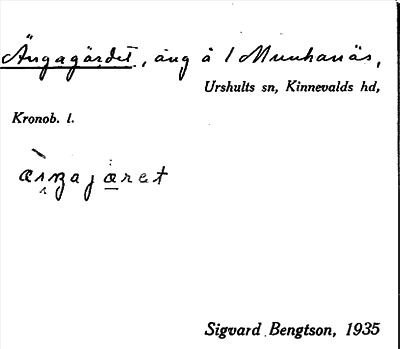 Ängagärdet, äng å 1 Munkanäs,
Urshults sn, Kinnevalds hd,
Kronob. l.
Sigvard Bengtson, 1935